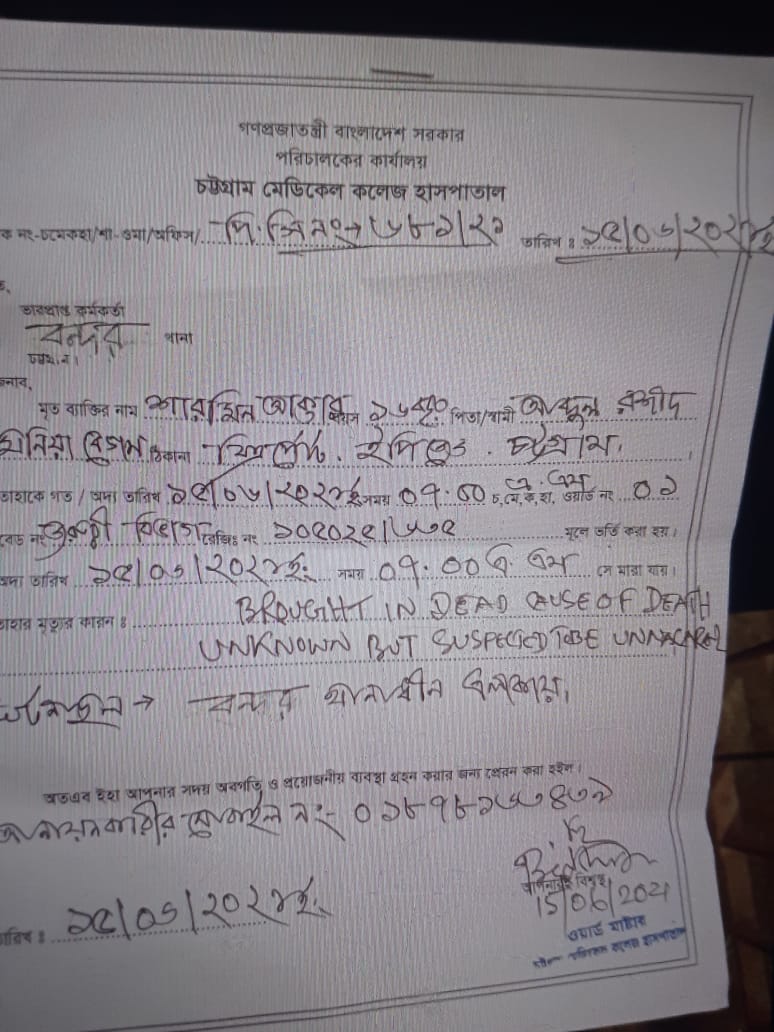 গণপ্রজাতন্ত্রী বাংলাদেশ সরকার
পরিচালকের কার্যালয়
চট্টগ্রাম মেডিকেল কলেজ হাসপাতাল
ক নং-চমেকহা/শা-ওমা/অফিস/ পি. জি নং→ ৬৮১/২১ তারিখ : ১৫/০৬/২০২১ইং
ভারপ্রাপ্ত কর্মকর্তা
বন্দর থানা
চট্টগ্রাম।
জনাব,
মৃত ব্যক্তির নাম শারমিন আক্তার বয়স পিতা/স্বামী আব্দুল রশীদ
মনিয়া বেগম ঠিকানা ইপিজেড. চট্টগ্রাম.
তাহাকে গত / অদ্য তারিখ ১৫/০৬/২০২১ইং সময় ০৭:৫০ চ,মে,ক,হা, ওয়ার্ড নং ০১
বেড নং জরুরী বিভাগ রেজিঃ নং মূলে ভর্তি করা হয়।
অদ্য তারিখ ১৫/০৬/২০২১ইং সময় ০৭:০০ সে মারা যায়।
তাহার মৃত্যুর কারন : BROUGHT IN DEAD CAUSE OF DEATH
UNKNOWN BUT SUSPECTED TO BE
ঘটনাস্থল → বন্দর থানাধীন এলাকায়।
অতএব ইহা আপনার সদয় অবগতি ও প্রয়োজনীয় ব্যবস্থা গ্রহন করার জন্য প্রেরন করা হইল।
আনায়নকারীর মোবাইল নং-
আপনারই বিশ্বস্ত
15/06/2021
তারিখ : ১৫/০৬/২০২১ইং
ওয়ার্ড মাষ্টার
মেডিকেল কলেজ হাসপাতাল